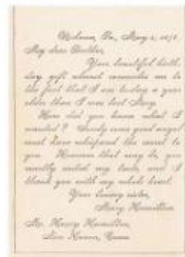 My dear Brother,
Your beautiful birth-
day gift almost reconciles me to
the fact that I am to-day a year
older than I was last May.
How did you know what I
wanted? Surely some good angel
must have whispered the secret to
you. However that may be, you
exactly suited my taste, and I
thank you with my whole heart.
Your loving sister,
Mary Hamilton.
Mr. Henry Hamilton,
New Haven, Conn.